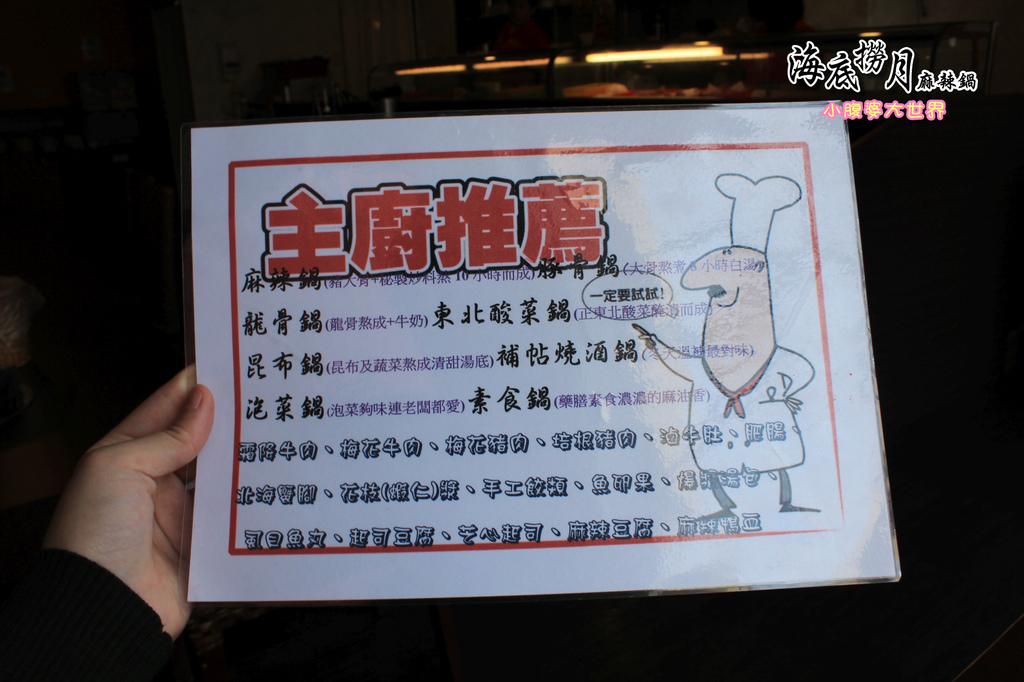 海底撈月麻辣鍋
小腹婆大世界
主廚推薦
麻辣鍋(豬大骨+秘製炒料熬10小時而成) 豚骨鍋(大骨熬煮8小時白湯)
一定要試試!
龍骨鍋(龍骨熬成+牛奶) 東北酸菜鍋(正東北酸菜醃漬而成)
昆布鍋(昆布及蔬菜熬成清甜湯底) 補帖燒酒鍋(冬天溫補最對味)
泡菜鍋(泡菜夠味連老闆都愛) 素食鍋(藥膳素食濃濃的麻油香)
霜降牛肉、梅花牛肉、梅花豬肉、培根豬肉、滷牛肚、肥腸
北海蟹腳、花枝(蝦仁)漿、手工餃類、魚卵果、爆漿湯包
虱目魚丸、起司豆腐、芝心起司、麻辣豆腐、麻辣鴨血